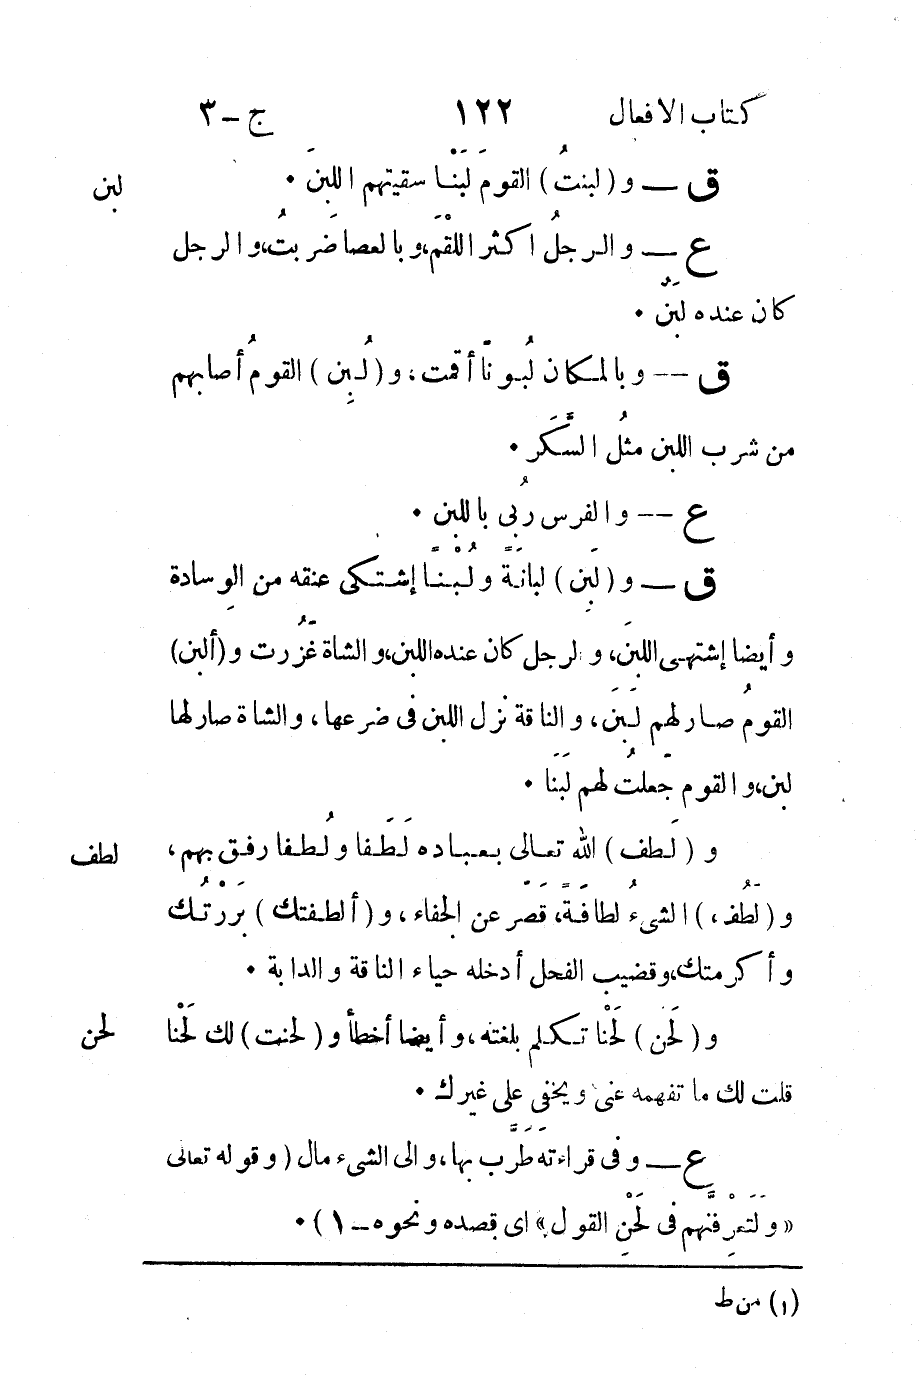 كتاب الافعال ١٢٢ ج – ٣
لبن
ق — و (لبنتُ) القومَ لَبَنْا سقيتهم اللبنَ .
ع — والرجلُ اكثر اللقْمَ، وبالعصا ضَربتُ، والرجل
كان عنده لبَنٌ .
ق — وبالمكان لُبونّا أقمت، و (لُبِن) القومُ أصابهم
من شرب اللبن مثلُ السَّكَر .
ع — والفرس رُبى باللبن .
ق — و (لَبِن) لبانَةً ولُبْنًا إشتكى عنقه من الوِسادة
وأيضا إشتهى اللبنَ، والرجل كان عنده اللبن، والشاة غَزُرت و (ألبن)
القومُ صار لهم لَبَن، والناقة نزل اللبن فى ضرعها، والشاة صار لها
لبن، والقوم جَعلتُ لهم لَبَنا .
لطف
و (لَطف) الله تعالى بعباده لَطَفا ولُطفا رفق بهم،
و (لَطُف،) الشىءُ لطافَةً، قصَر عن الجفاء، و (ألطفتك) بَرَرْتُك
وأكرمتك، وقضيب الفحل أدخله حياء الناقة والدابة .
لحن
و (لَحَن) لَحْنا تكلم بلغته، وأيضا أخطأ و (لحنت) لك لَحْنا
قلت لك ما تفهمه عنى ويخفى على غيرك .
ع — وفى قراءته طَرَّب بها، والى الشىء مال (وقوله تعالى
«ولَتَعْرِفَنَّهم فى لَحْنِ القول» اى قصده ونحوه – ١) .
(١) من ط